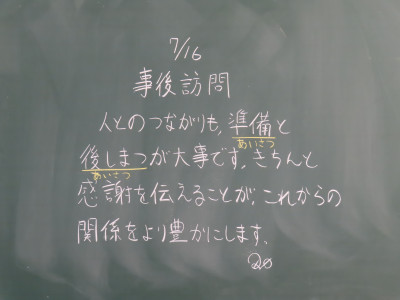 7/16
事後訪問
人とのつながりも、準備と
あいさつ
後しまつが大事です。きちんと
あいさつ
感謝を伝えることが、これからの
関係をより豊かにします、